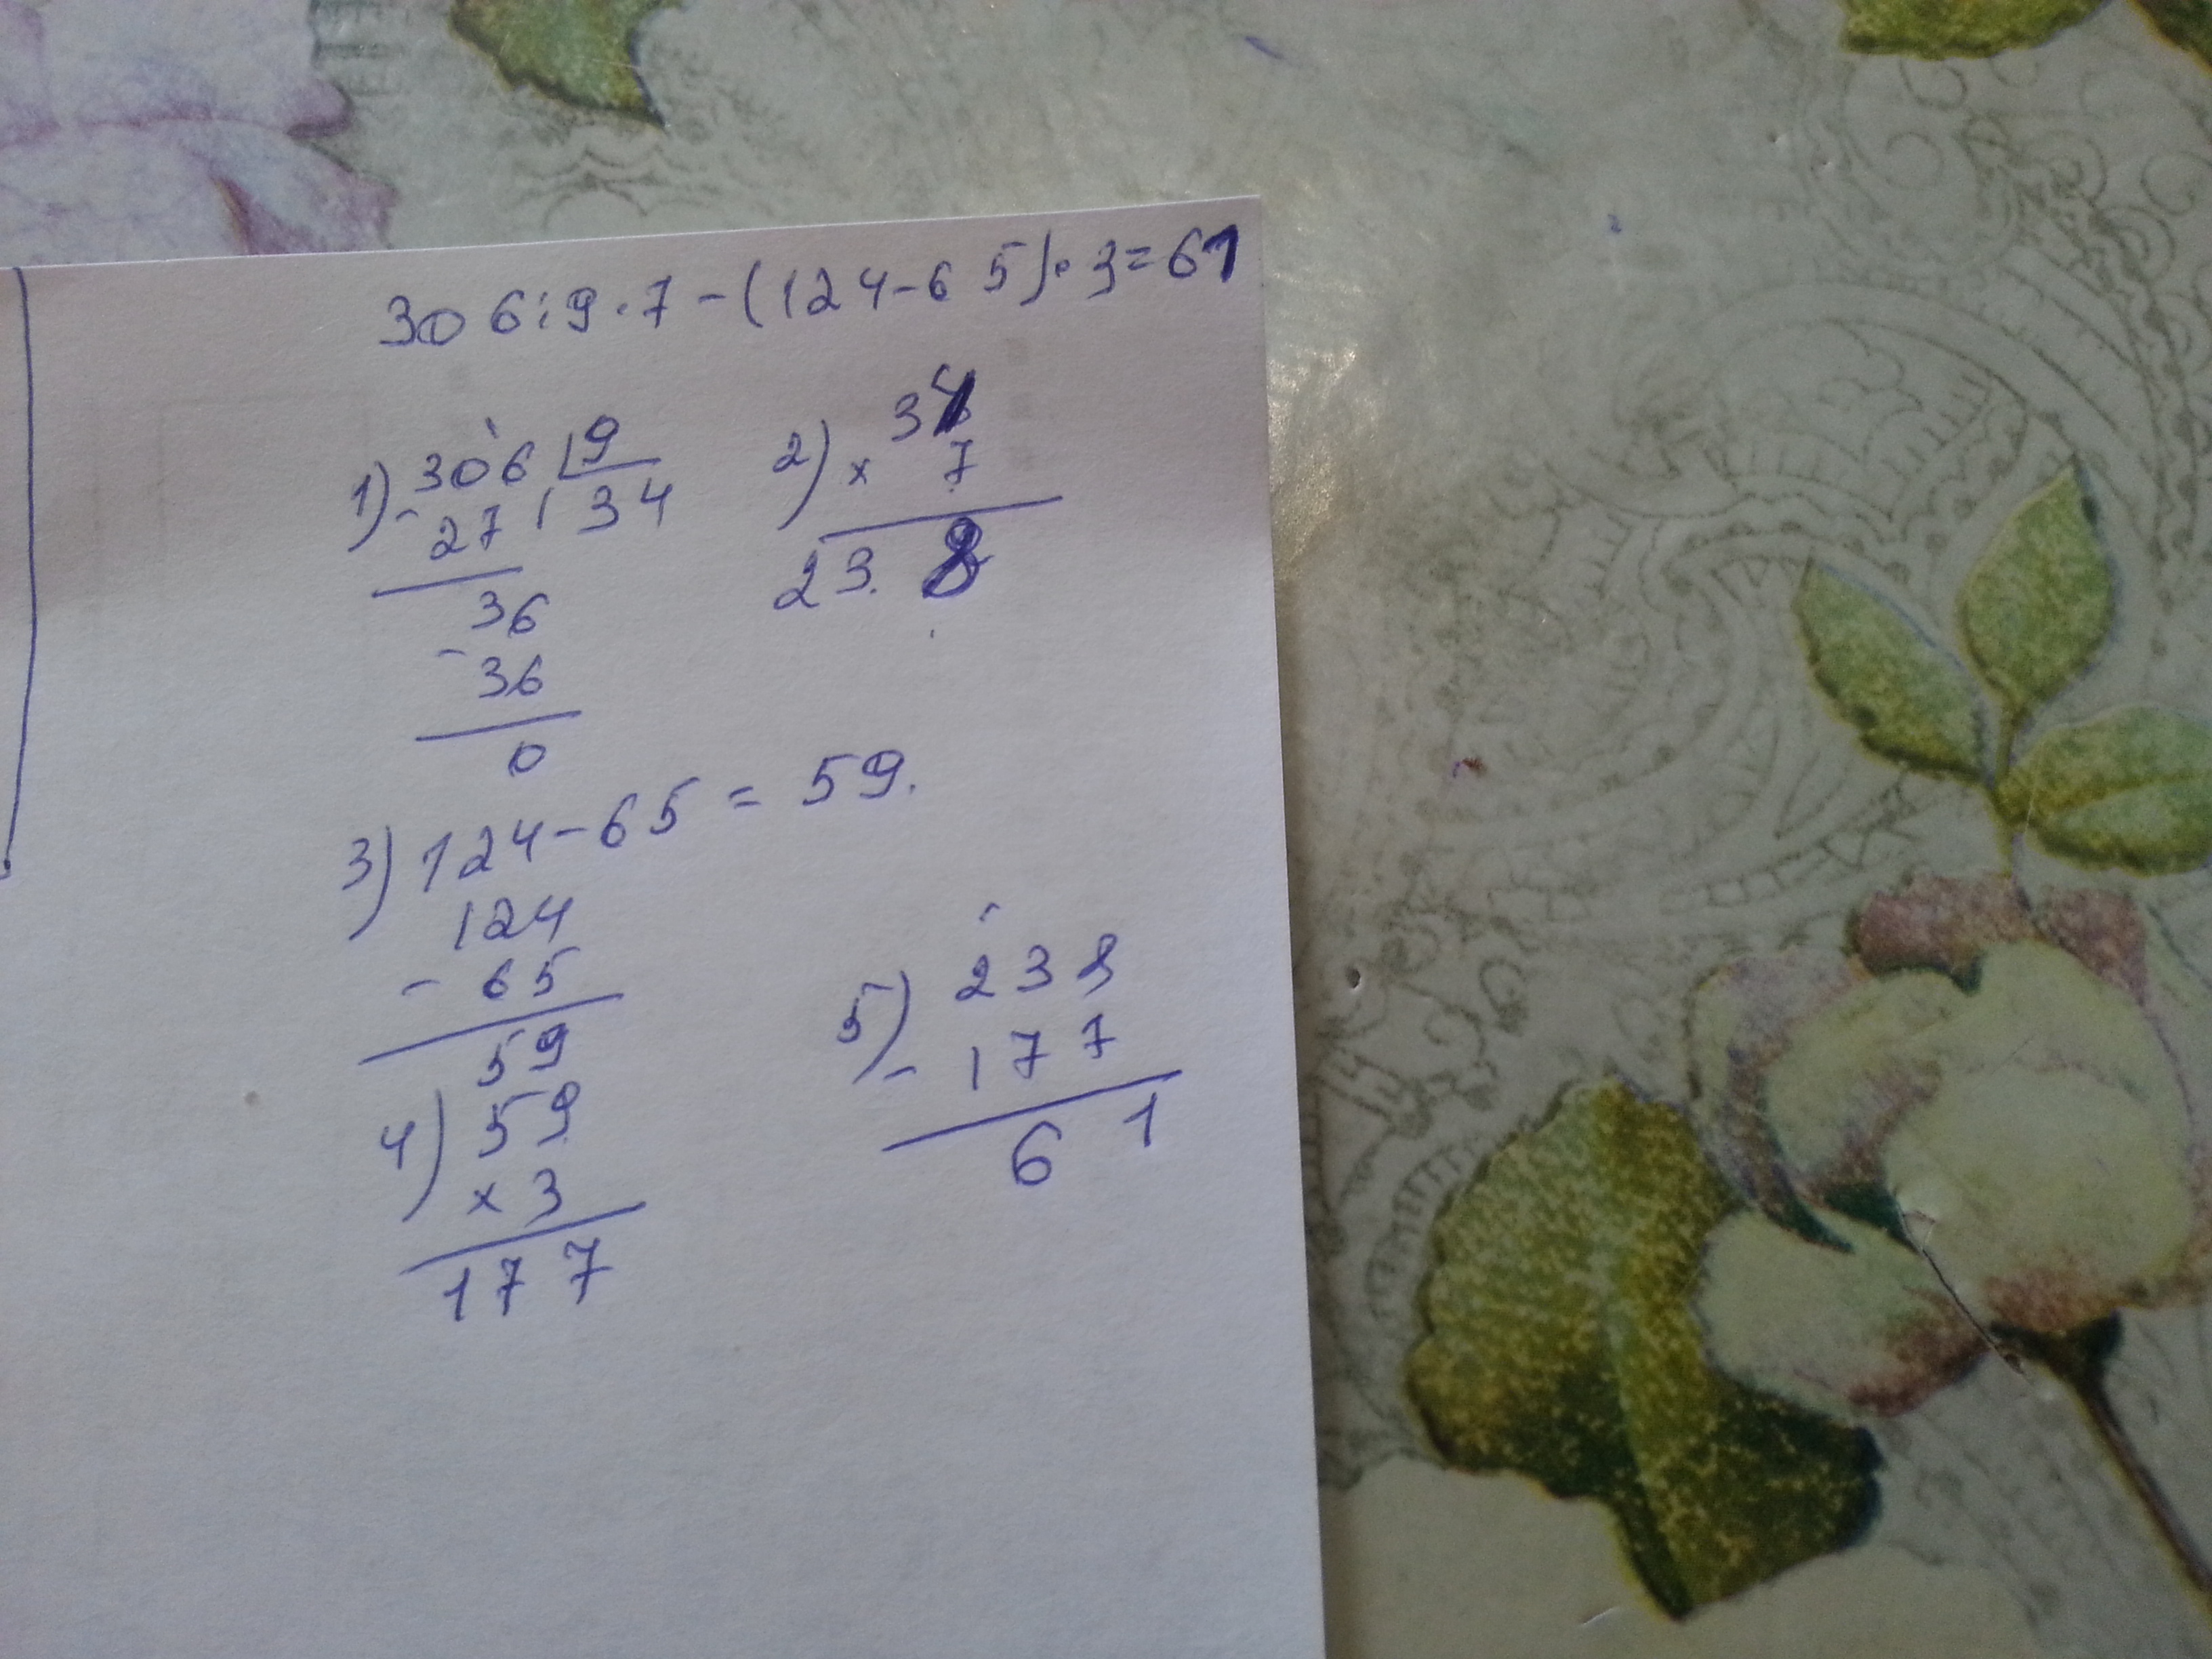 306:9·7-(124-65)·3=61
1) 306 9
- 27 34
36
- 36
0
2) 34
× 7
238
3) 124-65=59.
124
- 65
59
4) 59
× 3
177
5) 238
- 177
61